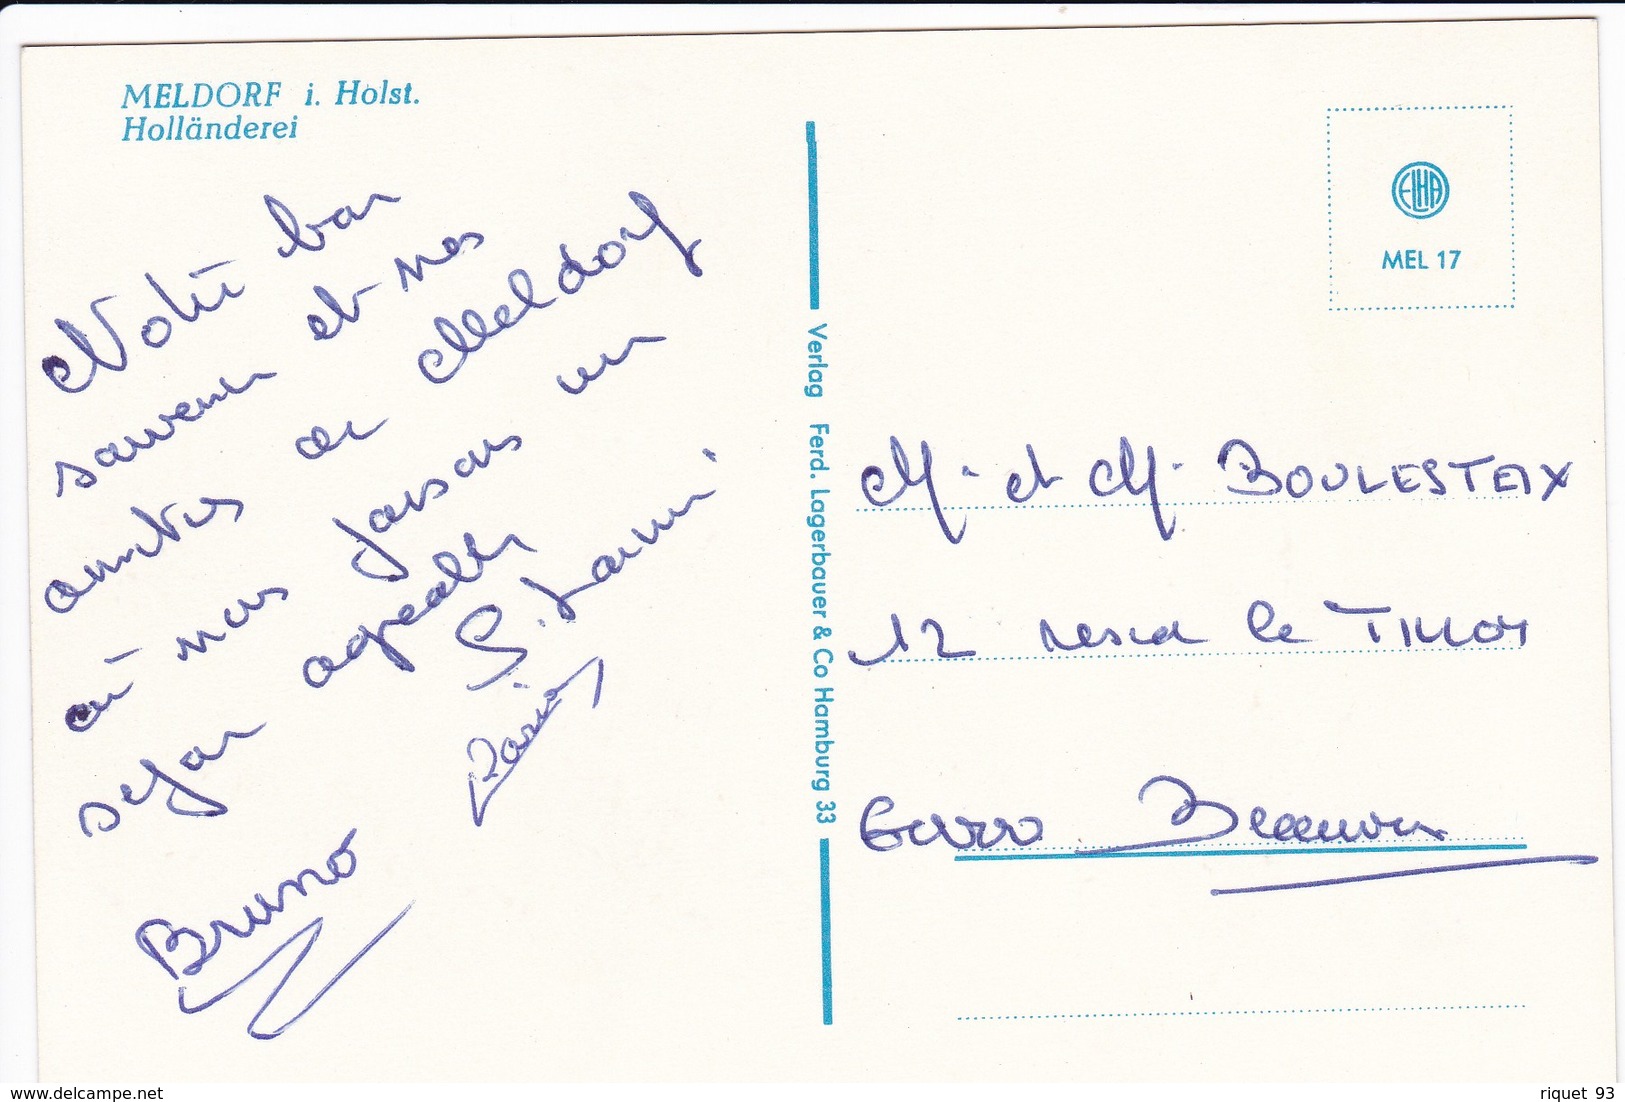 MELDORF i. Holst.
Holländerei
Notre bon
souvenir et nos
amitiés de Meldorf
où nous faisons un
séjour agréable
Bruno
Verlag Ferd. Lagerbauer & Co Hamburg 33
ELHA
MEL 17
M. et M. BOULESTEIX
12 resid le TILLOY
60000 Beauvais
www.delcampe.net
riquet 93